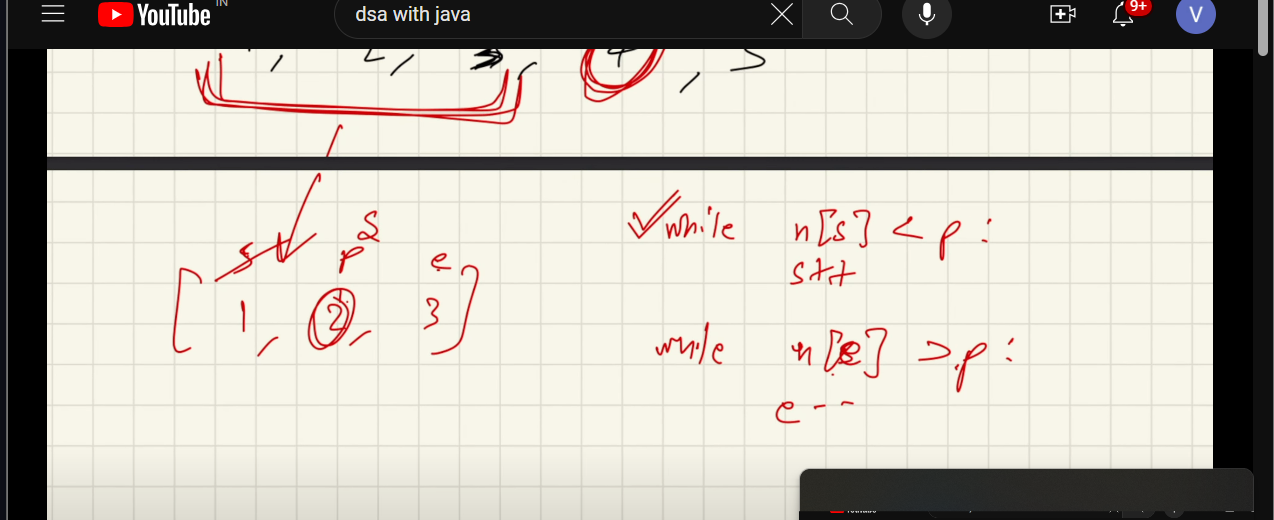 YouTube IN
dsa with java
9+
V
s
p
e
[ 1, 2, 3 ]
while n[s] < p :
s++
while n[e] > p :
e--